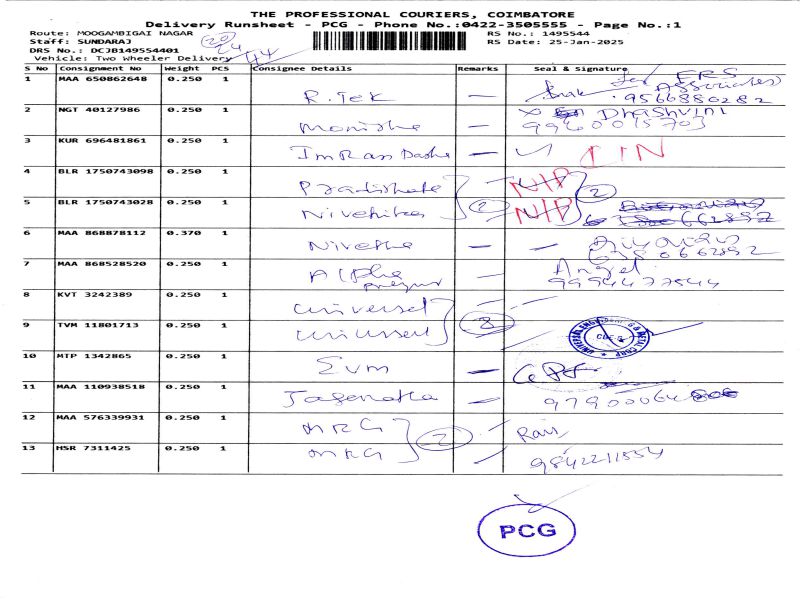 THE PROFESSIONAL COURIERS, COIMBATORE
Delivery Runsheet - PCG - Phone No.:0422-3505555 - Page No.:1
Route: MOOGAMBIGAI NAGAR RS No.: 1495544
Staff: SUNDARAJ RS Date: 25-Jan-2025
DRS No.: DCJB149554401
Vehicle: Two Wheeler Delivery 44
S No Consignment No Weight PCS Consignee Details Remarks Seal & Signature
1 MAA 650862648 0.250 1 R. Tek — for ERS Associates 9566880282
2 NGT 40127986 0.250 1 Monisha — Dhashvini 9940015703
3 KUR 696481861 0.250 1 Imran Dasha —
4 BLR 1750743098 0.250 1 N/P
5 BLR 1750743028 0.250 1 Nivethika 2 N/P 2
6 MAA 868878112 0.370 1 Nivetha — —
7 MAA 868528520 0.250 1 Alpha — Angel 9994477544
8 KVT 3242389 0.250 1 Universal
9 TVM 11801713 0.250 1 Universal
10 MTP 1342865 0.250 1 Evm —
11 MAA 110938518 0.250 1 Jagenatha — 97900064
12 MAA 576339931 0.250 1 MRG 2 Ram
13 HSR 7311425 0.250 1 MRG 9842211554
PCG